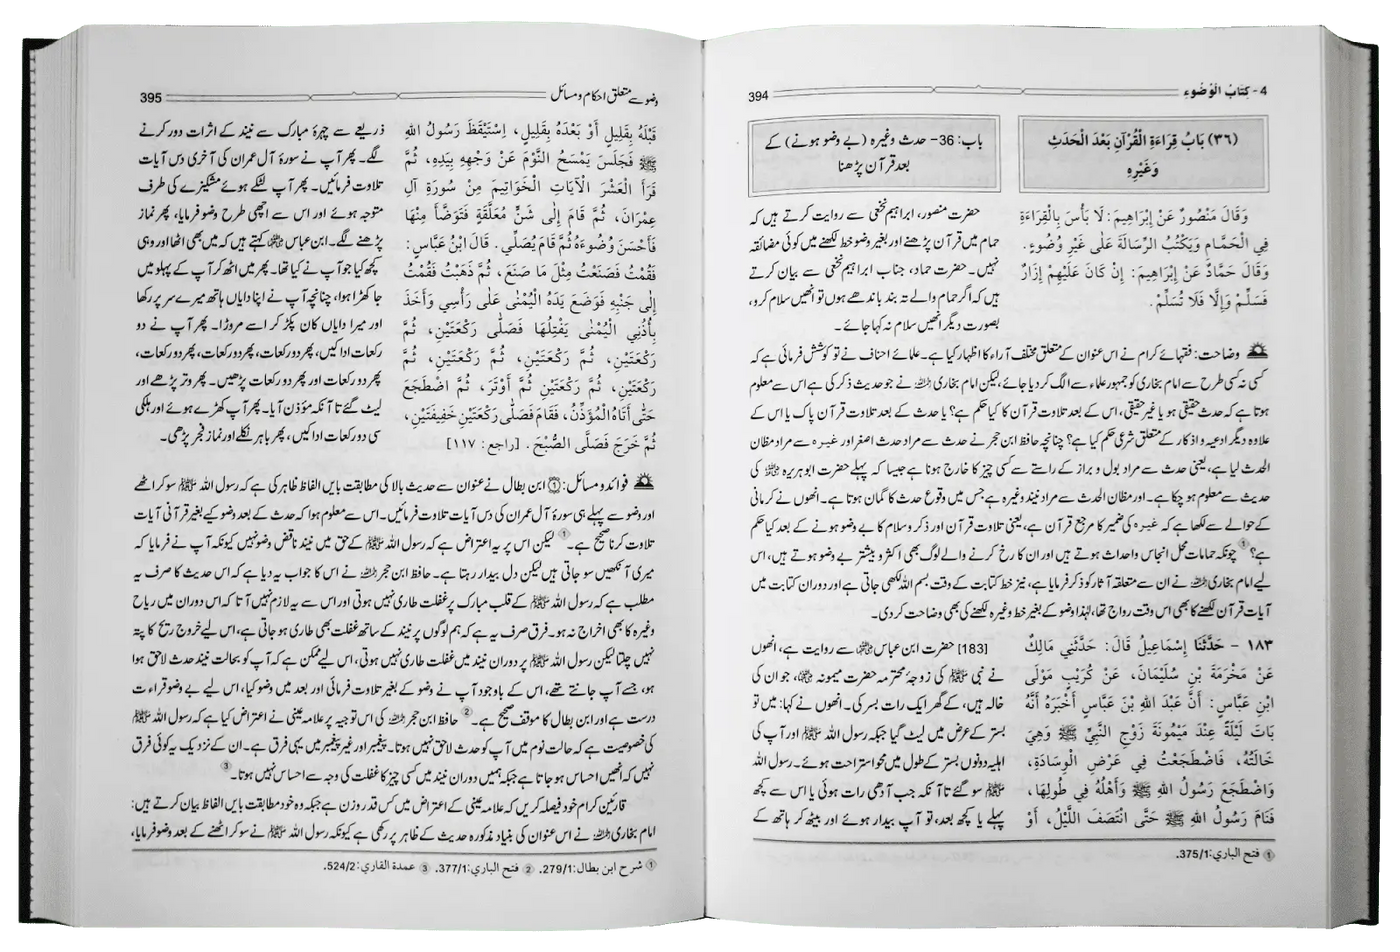 4- كِتَابُ الْوُضُوءِ
394
(٣٦) بَابُ قِرَاءَةِ الْقُرْآنِ بَعْدَ الْحَدَثِ
وَغَيْرِهِ
باب: 36- حدث وغیرہ (بے وضو ہونے) کے
بعد قرآن پڑھنا
وَقَالَ مَنْصُورٌ عَنْ إِبْرَاهِيمَ: لَا بَأْسَ بِالْقِرَاءَةِ
فِي الْحَمَّامِ وَيَكْتُبُ الرِّسَالَةَ عَلٰى غَيْرِ وُضُوءٍ.
وَقَالَ حَمَّادٌ عَنْ إِبْرَاهِيمَ: إِنْ كَانَ عَلَيْهِمْ إِزَارٌ
فَسَلِّمْ وَإِلَّا فَلَا تُسَلِّمْ.
حضرت منصور، ابراہیم نخعی سے روایت کرتے ہیں کہ
حمام میں قرآن پڑھنے اور بغیر وضو خط لکھنے میں کوئی مضائقہ
نہیں۔ حضرت حماد، جناب ابراہیم نخعی سے بیان کرتے
ہیں کہ اگر حمام والے تہ بند باندھے ہوں تو انھیں سلام کرو،
بصورت دیگر انھیں سلام نہ کہا جائے۔
وضاحت: فقہائے کرام نے اس عنوان کے متعلق مختلف آراء کا اظہار کیا ہے۔ علمائے احناف نے تو کوشش فرمائی ہے کہ
کسی نہ کسی طرح سے امام بخاری کو جمہور علماء سے الگ کر دیا جائے، لیکن امام بخاری رحمہ اللہ نے جو حدیث ذکر کی ہے اس سے معلوم
ہوتا ہے کہ حدث حقیقی ہو یا غیر حقیقی، اس کے بعد تلاوت قرآن کا کیا حکم ہے؟ یا حدث کے بعد تلاوت قرآن پاک یا اس کے
علاوہ دیگر ادعیہ و اذکار کے متعلق شرعی حکم کیا ہے؟ چنانچہ حافظ ابن حجر نے حدث سے مراد حدث اصغر اور غیرہ سے مراد مظان
الحدث لیا ہے، یعنی حدث سے مراد بول و براز کے راستے سے کسی چیز کا خارج ہونا ہے جیسا کہ پہلے حضرت ابو ہریرہ ؓ کی
حدیث سے معلوم ہو چکا ہے۔ اور مظان الحدث سے مراد نیند وغیرہ ہے جس میں وقوع حدث کا گمان ہوتا ہے۔ انھوں نے کرمانی
کے حوالے سے لکھا ہے کہ غیرہ کی ضمیر کا مرجع قرآن ہے، یعنی تلاوت قرآن اور ذکر و سلام کا بے وضو ہونے کے بعد کیا حکم
ہے؟ ① چونکہ حمامات محل انجاس و احداث ہوتے ہیں اور ان کا رخ کرنے والے لوگ بھی اکثر و بیشتر بے وضو ہوتے ہیں، اس
لیے امام بخاری رحمہ اللہ نے ان سے متعلقہ آثار کو ذکر فرمایا ہے، نیز خط کتابت کے وقت بسم اللہ لکھی جاتی ہے اور دوران کتابت میں
آیات قرآن لکھنے کا بھی اس وقت رواج تھا، لہٰذا وضو کے بغیر خط وغیرہ لکھنے کی بھی وضاحت کر دی۔
١٨٣ - حَدَّثَنَا إِسْمَاعِيلُ قَالَ: حَدَّثَنِي مَالِكٌ
عَنْ مَخْرَمَةَ بْنِ سُلَيْمَانَ، عَنْ كُرَيْبٍ مَوْلَى
ابْنِ عَبَّاسٍ: أَنَّ عَبْدَ اللهِ بْنَ عَبَّاسٍ أَخْبَرَهُ أَنَّهُ
بَاتَ لَيْلَةً عِنْدَ مَيْمُونَةَ زَوْجِ النَّبِيِّ ﷺ وَهِيَ
خَالَتُهُ، فَاضْطَجَعْتُ فِي عَرْضِ الْوِسَادَةِ،
وَاضْطَجَعَ رَسُولُ اللهِ ﷺ وَأَهْلُهُ فِي طُولِهَا،
فَنَامَ رَسُولُ اللهِ ﷺ حَتَّى انْتَصَفَ اللَّيْلُ، أَوْ
[183] حضرت ابن عباس ؓ سے روایت ہے، انھوں
نے نبی ﷺ کی زوجۂ محترمہ حضرت میمونہ ؓ، جو ان کی
خالہ ہیں، کے گھر ایک رات بسر کی۔ انھوں نے کہا: میں تو
بستر کے عرض میں لیٹ گیا جبکہ رسول اللہ ﷺ اور آپ کی
اہلیہ دونوں بستر کے طول میں محو استراحت ہوئے۔ رسول اللہ
ﷺ سو گئے تا آنکہ جب آدھی رات ہوئی یا اس سے کچھ
پہلے یا کچھ بعد، تو آپ بیدار ہوئے اور بیٹھ کر ہاتھ کے
① فتح الباري: 375/1.
وضو سے متعلق احکام و مسائل
395
قَبْلَهُ بِقَلِيلٍ أَوْ بَعْدَهُ بِقَلِيلٍ، اِسْتَيْقَظَ رَسُولُ اللهِ
ﷺ فَجَلَسَ يَمْسَحُ النَّوْمَ عَنْ وَجْهِهِ بِيَدِهِ، ثُمَّ
قَرَأَ الْعَشْرَ الْآيَاتِ الْخَوَاتِيمَ مِنْ سُورَةِ آلِ
عِمْرَانَ، ثُمَّ قَامَ إِلٰى شَنٍّ مُعَلَّقَةٍ فَتَوَضَّأَ مِنْهَا
فَأَحْسَنَ وُضُوءَهُ ثُمَّ قَامَ يُصَلِّي. قَالَ ابْنُ عَبَّاسٍ:
فَقُمْتُ فَصَنَعْتُ مِثْلَ مَا صَنَعَ، ثُمَّ ذَهَبْتُ فَقُمْتُ
إِلٰى جَنْبِهِ فَوَضَعَ يَدَهُ الْيُمْنٰى عَلٰى رَأْسِي وَأَخَذَ
بِأُذُنِي الْيُمْنٰى يَفْتِلُهَا فَصَلّٰى رَكْعَتَيْنِ، ثُمَّ
رَكْعَتَيْنِ، ثُمَّ رَكْعَتَيْنِ، ثُمَّ رَكْعَتَيْنِ، ثُمَّ
رَكْعَتَيْنِ، ثُمَّ رَكْعَتَيْنِ ثُمَّ أَوْتَرَ، ثُمَّ اضْطَجَعَ
حَتّٰى أَتَاهُ الْمُؤَذِّنُ، فَقَامَ فَصَلّٰى رَكْعَتَيْنِ خَفِيفَتَيْنِ،
ثُمَّ خَرَجَ فَصَلَّى الصُّبْحَ. [راجع: ١١٧]
ذریعے سے چہرۂ مبارک سے نیند کے اثرات دور کرنے
لگے۔ پھر آپ نے سورۂ آل عمران کی آخری دس آیات
تلاوت فرمائیں۔ پھر آپ لٹکے ہوئے مشکیزے کی طرف
متوجہ ہوئے اور اس سے اچھی طرح وضو فرمایا، پھر نماز
پڑھنے لگے۔ ابن عباس ؓ کہتے ہیں کہ میں بھی اٹھا اور وہی
کچھ کیا جو آپ نے کیا تھا۔ پھر میں اٹھ کر آپ کے پہلو میں
جا کھڑا ہوا، چنانچہ آپ نے اپنا دایاں ہاتھ میرے سر پر رکھا
اور میرا دایاں کان پکڑ کر اسے مروڑا۔ پھر آپ نے دو
رکعات ادا کیں، پھر دو رکعات، پھر دو رکعات، پھر دو رکعات،
پھر دو رکعات اور پھر دو رکعات پڑھیں۔ پھر وتر پڑھے اور
لیٹ گئے تا آنکہ مؤذن آیا۔ پھر آپ کھڑے ہوئے اور ہلکی
سی دو رکعات ادا کیں، پھر باہر نکلے اور نماز فجر پڑھی۔
فوائد و مسائل: ① ابن بطال نے عنوان سے حدیث بالا کی مطابقت بایں الفاظ ظاہر کی ہے کہ رسول اللہ ﷺ سو کر اٹھے
اور وضو سے پہلے ہی سورۂ آل عمران کی دس آیات تلاوت فرمائیں۔ اس سے معلوم ہوا کہ حدث کے بعد وضو کیے بغیر قرآنی آیات
تلاوت کرنا صحیح ہے۔ ① لیکن اس پر یہ اعتراض ہے کہ رسول اللہ ﷺ کے حق میں نیند ناقض وضو نہیں کیونکہ آپ نے فرمایا کہ
میری آنکھیں سو جاتی ہیں لیکن دل بیدار رہتا ہے۔ حافظ ابن حجر رحمہ اللہ نے اس کا جواب یہ دیا ہے کہ اس حدیث کا صرف یہ
مطلب ہے کہ رسول اللہ ﷺ کے قلب مبارک پر غفلت طاری نہیں ہوتی اور اس سے یہ لازم نہیں آتا کہ اس دوران میں ریاح
وغیرہ کا بھی اخراج نہ ہو۔ فرق صرف یہ ہے کہ ہم لوگوں پر نیند کے ساتھ غفلت بھی طاری ہو جاتی ہے، اس لیے خروج ریح کا پتہ
نہیں چلتا لیکن رسول اللہ ﷺ پر دوران نیند میں غفلت طاری نہیں ہوتی، اس لیے ممکن ہے کہ آپ کو بحالت نیند حدث لاحق ہوا
ہو، جسے آپ جانتے تھے، اس کے باوجود آپ نے وضو کے بغیر تلاوت فرمائی اور بعد میں وضو کیا، اس لیے بے وضو قراءت
درست ہے اور ابن بطال کا موقف صحیح ہے۔ ② حافظ ابن حجر رحمہ اللہ کی اس توجیہ پر علامہ عینی نے اعتراض کیا ہے کہ رسول اللہ ﷺ
کی خصوصیت ہے کہ حالت نوم میں آپ کو حدث لاحق نہیں ہوتا۔ پیغمبر اور غیر پیغمبر میں یہی فرق ہے۔ ان کے نزدیک یہ کوئی فرق
نہیں کہ انھیں احساس ہو جاتا ہے جبکہ ہمیں دوران نیند میں کسی چیز کا غفلت کی وجہ سے احساس نہیں ہوتا۔ ③
قارئین کرام خود فیصلہ کریں کہ علامہ عینی کے اعتراض میں کس قدر وزن ہے جبکہ وہ خود مطابقت بایں الفاظ بیان کرتے ہیں:
امام بخاری رحمہ اللہ نے اس عنوان کی بنیاد مذکورہ حدیث کے ظاہر پر رکھی ہے کیونکہ رسول اللہ ﷺ نے سو کر اٹھنے کے بعد وضو فرمایا،
① شرح ابن بطال: 279/1. ② فتح الباري: 377/1. ③ عمدة القاري: 524/2.